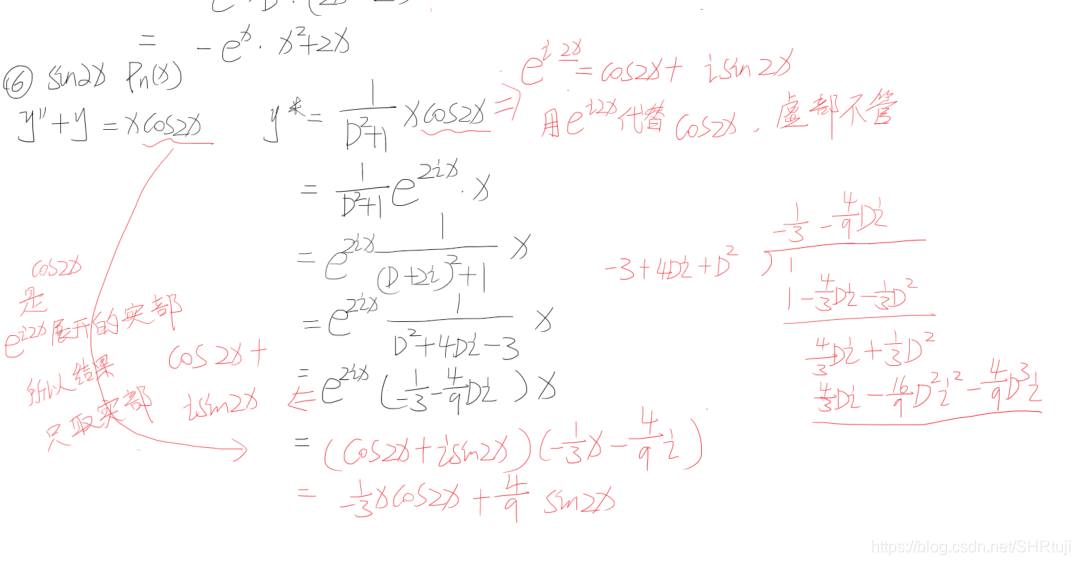 = -e^x · x²+2x
⑥ sin2x Pn(x)
y''+y = xcos2x
y* = 1/(D²+1) xcos2x ⇒ e^{i2x} = cos2x + isin2x
用e^{i2x}代替cos2x，虚部不管
= 1/(D²+1) e^{2ix}·x
= e^{2ix} 1/((D+2i)²+1) x
= e^{2ix} 1/(D²+4Di-3) x
= e^{2ix} (-1/3 - 4/9 Di) x
= (cos2x+isin2x)(-1/3 x - 4/9 i)
= -1/3 xcos2x + 4/9 sin2x
cos2x
是
e^{i2x}展开的实部
所以结果
只取实部
cos2x+
isin2x ⇐
-1/3 - 4/9 Di
-3+4Di+D² ) 1
1 - 4/3 Di - 1/3 D²
4/3 Di + 1/3 D²
4/3 Di - 16/9 D²i² - 4/9 D³i
https://blog.csdn.net/SHRtuji